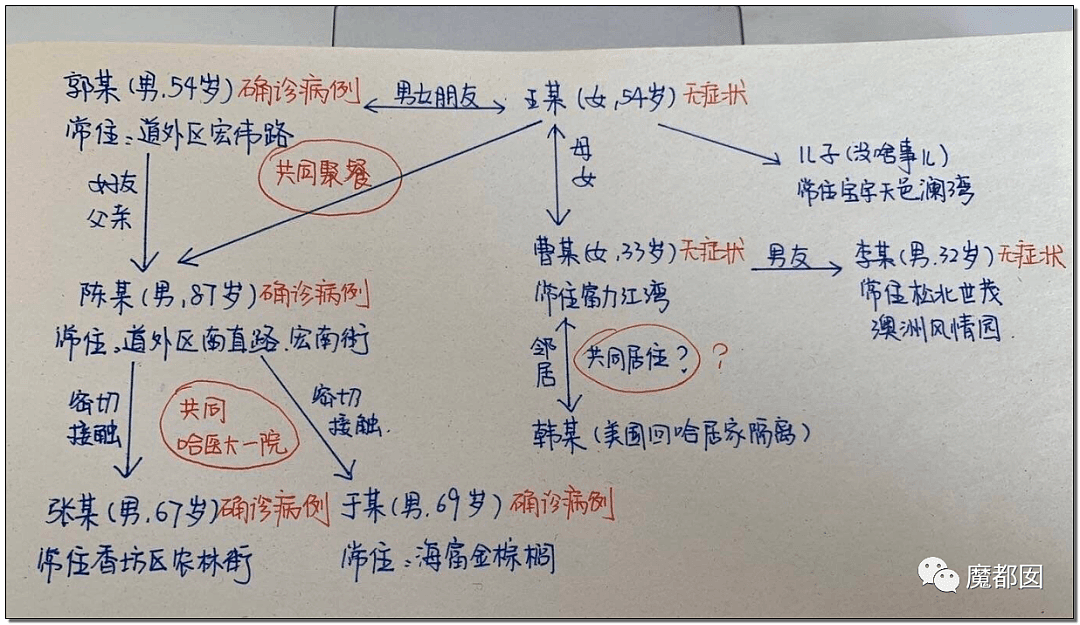 郭某(男,54岁)确诊病例
男女朋友
王某(女,54岁)无症状
常住:道外区宏伟路
共同聚餐
女朋友
父亲
母
女
儿子(没啥事儿)
常住宝宇天邑澜湾
曹某(女,33岁)无症状
男友
李某(男.32岁)无症状
常住富力江湾
常住松北世茂
澳洲风情园.
陈某(男,87岁)确诊病例
常住:道外区南直路.宏南街
邻
居
共同居住?
?
密切
接触
共同
哈医大一院
密切
接触.
韩某(美国回哈居家隔离)
张某(男.67岁)确诊病例
于某(男.69岁)确诊病例
常住香坊区农林街
常住:海富金棕榈
魔都囡